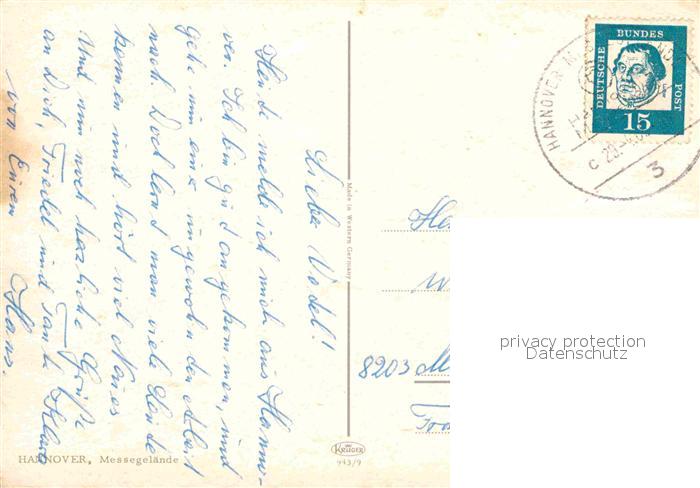 Liebe Vodel!
Heute melde ich mich aus Hanno-
ver. Ich bin gut angekommen, und
gehe nun einer ungewohnten Arbeit
nach. Doch lernt man viele Leute
kennen und hört viel Neues
Und nun noch herzliche Grüße
an Dich, Friedel und Tante Klara
von Eurem
Hans.
HANNOVER, Messegelände
Made in Western Germany
KRÜGER
943/9
DEUTSCHE BUNDES POST
15
HANNOVER
3
8203
privacy protection
Datenschutz